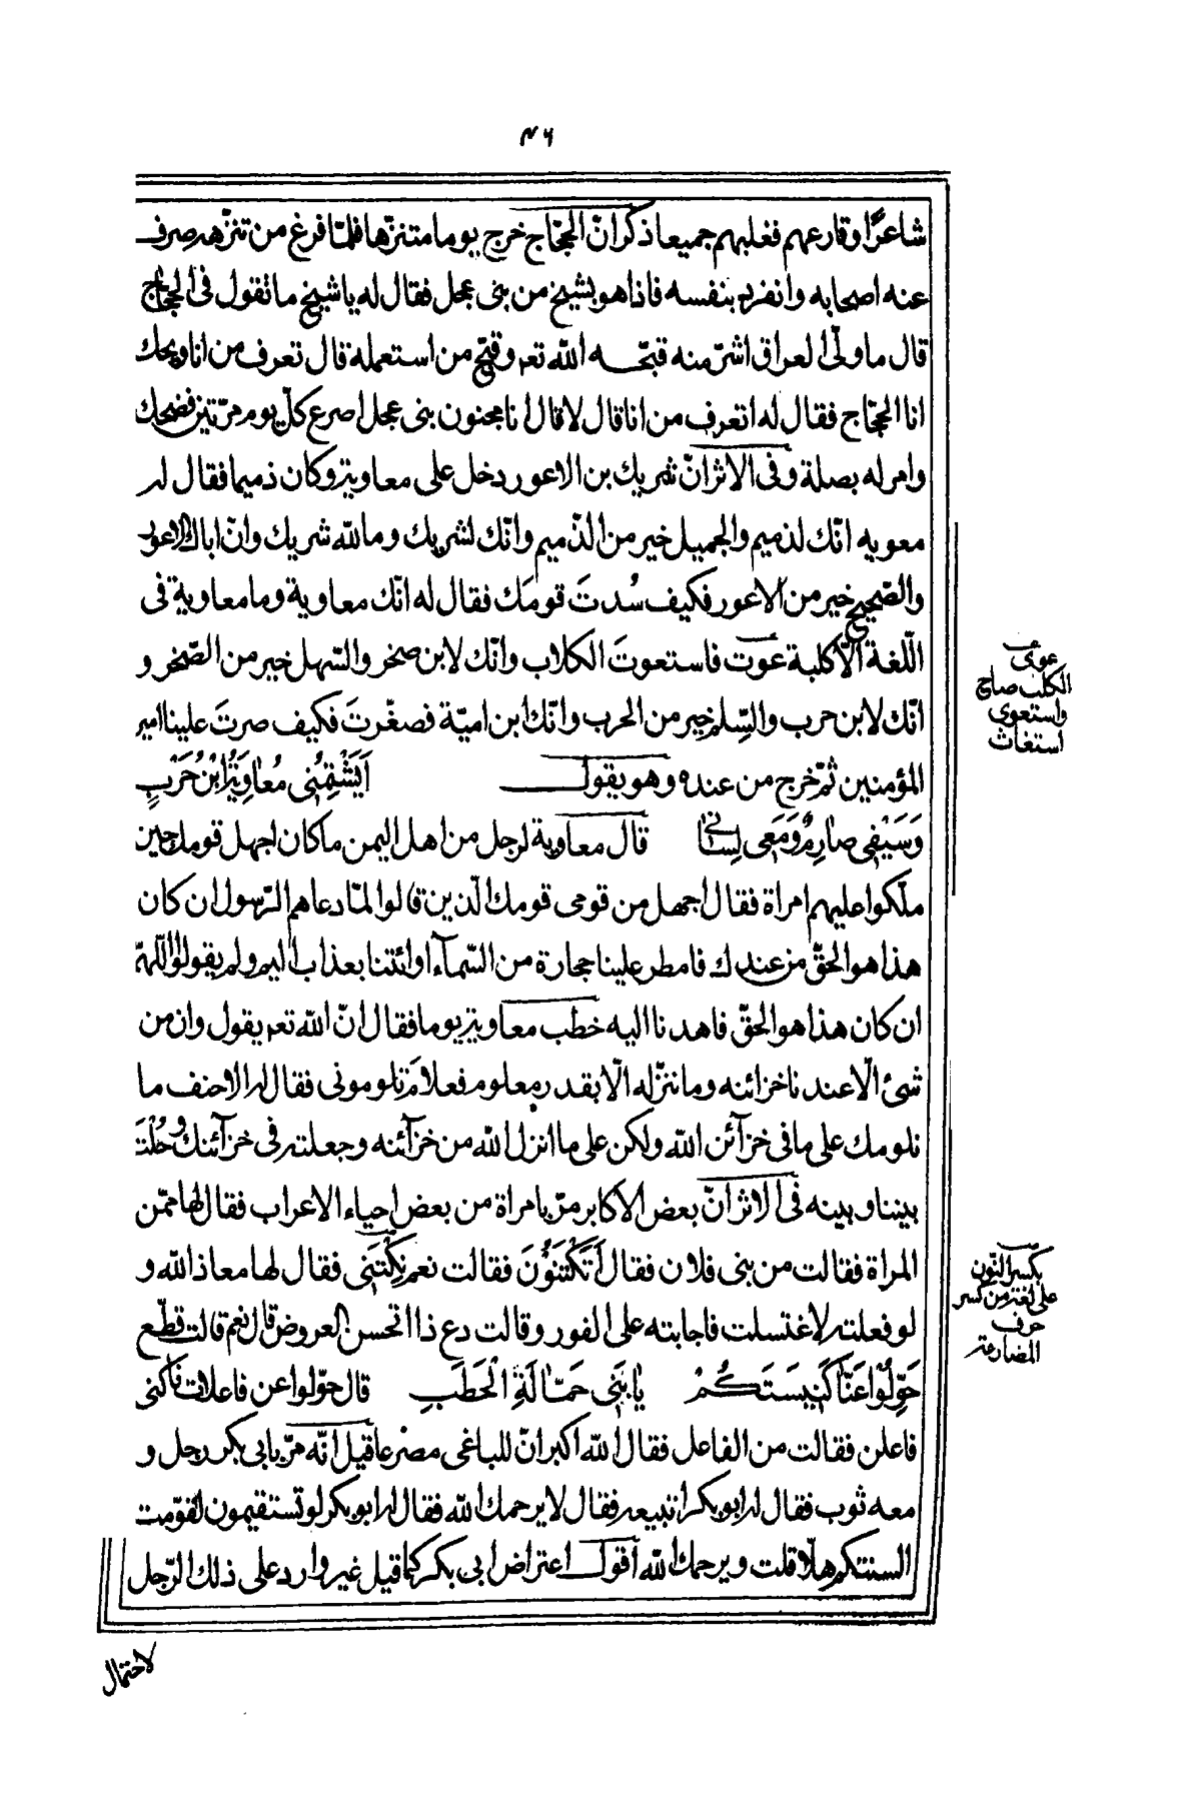 ٤٦
شاعرًا وقارعهم فغلبهم جميعا ذكر انّ الحجّاج خرج يوما متنزّها فلمّا فرغ من تنزّهه صرف
عنه اصحابه وانفرد بنفسه فاذا هو بشيخ من بنى عجل فقال له يا شيخ ما تقول فى الحجّاج
قال ما ولّى العراق اشرّ منه قبّحه الله تعم وقبّح من استعمله قال تعرف من انا ويحك
انا الحجّاج فقال له اتعرف من انا قال لا قال انا مجنون بنى عجل اصرع كلّ يوم مرّتين فضحك
وامر له بصلة وفى الاثر انّ شريك بن الاعور دخل على معاوية وكان ذميما فقال له
معويه انّك لذميم والجميل خير من الذّميم وانّك لشريك وما لله شريك وانّ اباك الاعور
والصّحيح خير من الاعور فكيف سُدتَ قومَك فقال له انّك معاوية وما معاوية فى
اللّغة الّا كلبة عوت فاستعوتَ الكلاب وانّك لابن صخر والسّهل خير من الصّخر و
انّك لابن حرب والسِّلم خير من الحرب وانّك ابن اميّة فصغّرتَ فكيف صرتَ علينا امير
المؤمنين ثمّ خرج من عنده وهو يقول اَيَشْتِمُنِى مُعٰاوِيَةُ ابْنُ حَرْبٍ
وَسَيْفِى صٰارِمٌ وَمَعِى لِسٰانِى قال معاوية لرجل من اهل اليمن ما كان اجهل قومك حين
ملّكوا عليهم امراة فقال اجهل من قومى قومك الّذين قالوا لمّا دعاهم الرّسول ان كان
هذا هو الحقّ من عندك فامطر علينا حجارة من السّمآء او ائتنا بعذاب اليم ولم يقولوا اللّهمّ
ان كان هذا هو الحقّ فاهدنا اليه خطب معاوية يوما فقال انّ الله تعم يقول وان من
شئ الّا عندنا خزائنه وما ننزّله الّا بقدر معلوم فعلامَ تلومونى فقال له الاحنف ما
نلومك على ما فى خزآئن الله ولكن على ما انزل الله من خزآئنه وجعلته فى خزآئنك وحُلْتَ
بيننا وبينه فى الاثر انّ بعض الاكابر مرّ بامراة من بعض احياء الاعراب فقال لها ممّن
المراة فقالت من بنى فلان فقال اَتَكْتَنُوُنَ فقالت نعم نِكْتَنِى فقال لها معاذ الله و
لو فعلته لاغتسلت فاجابته على الفور وقالت دع ذا اتحسن العروض قال نعم قالت قطّع
حَوِّلُوُا عَنّٰا كَنِيسَتَكُمْ يٰا بَنِى حَمّٰالَةِ الْحَطَبِ قال حوّلوا عن فاعلاتن ناكنى
فاعلن فقالت من الفاعل فقال الله اكبر انّ للباغى مصرعا قيل انّه مرّ بابى بكر رجل و
معه ثوب فقال له ابو بكر اتبيعه فقال لا يرحمك الله فقال له ابو بكر لو تستقيمون لقوّمت
السنتكم هلّا قلت ويرحمك الله اقول اعتراض ابى بكر كما قيل غير وارد على ذلك الرّجل
عوى
الكلب صاح
واستعوى
استغاث
بكسر النّون
على لغة من كسر
حرف
المضارعة
لاحتمال